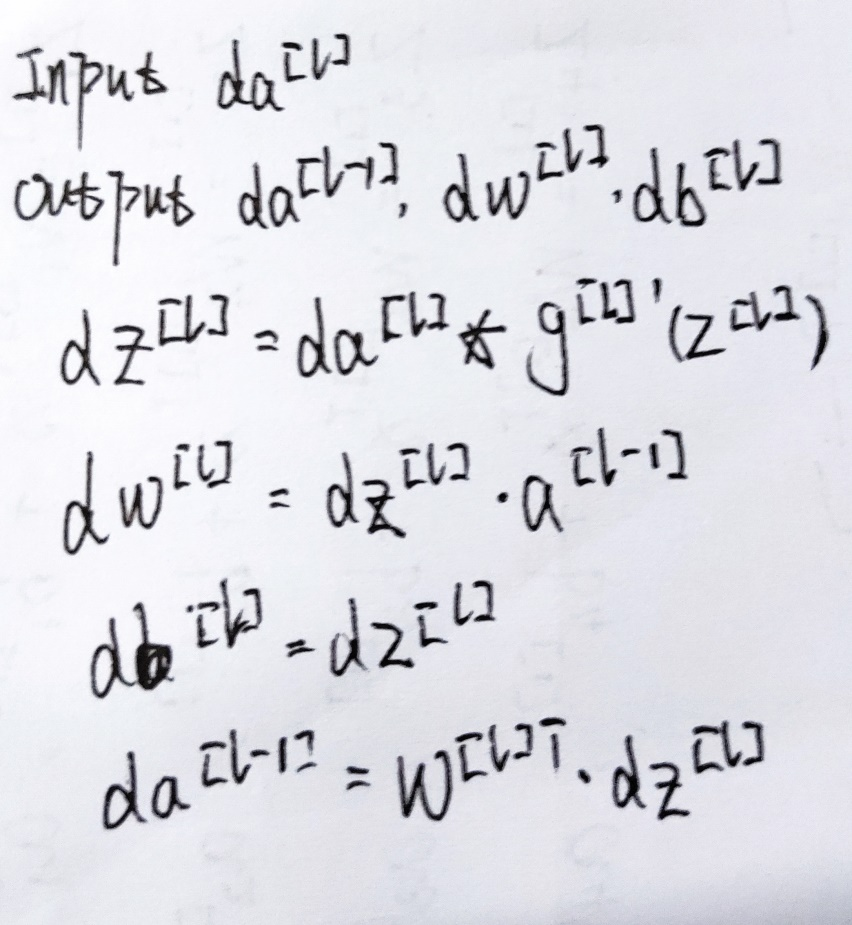 Input da^[l]
Output da^[l-1], dw^[l], db^[l]
dz^[l] = da^[l] * g^[l]'(z^[l])
dw^[l] = dz^[l] · a^[l-1]
db^[l] = dz^[l]
da^[l-1] = W^[l]T · dz^[l]